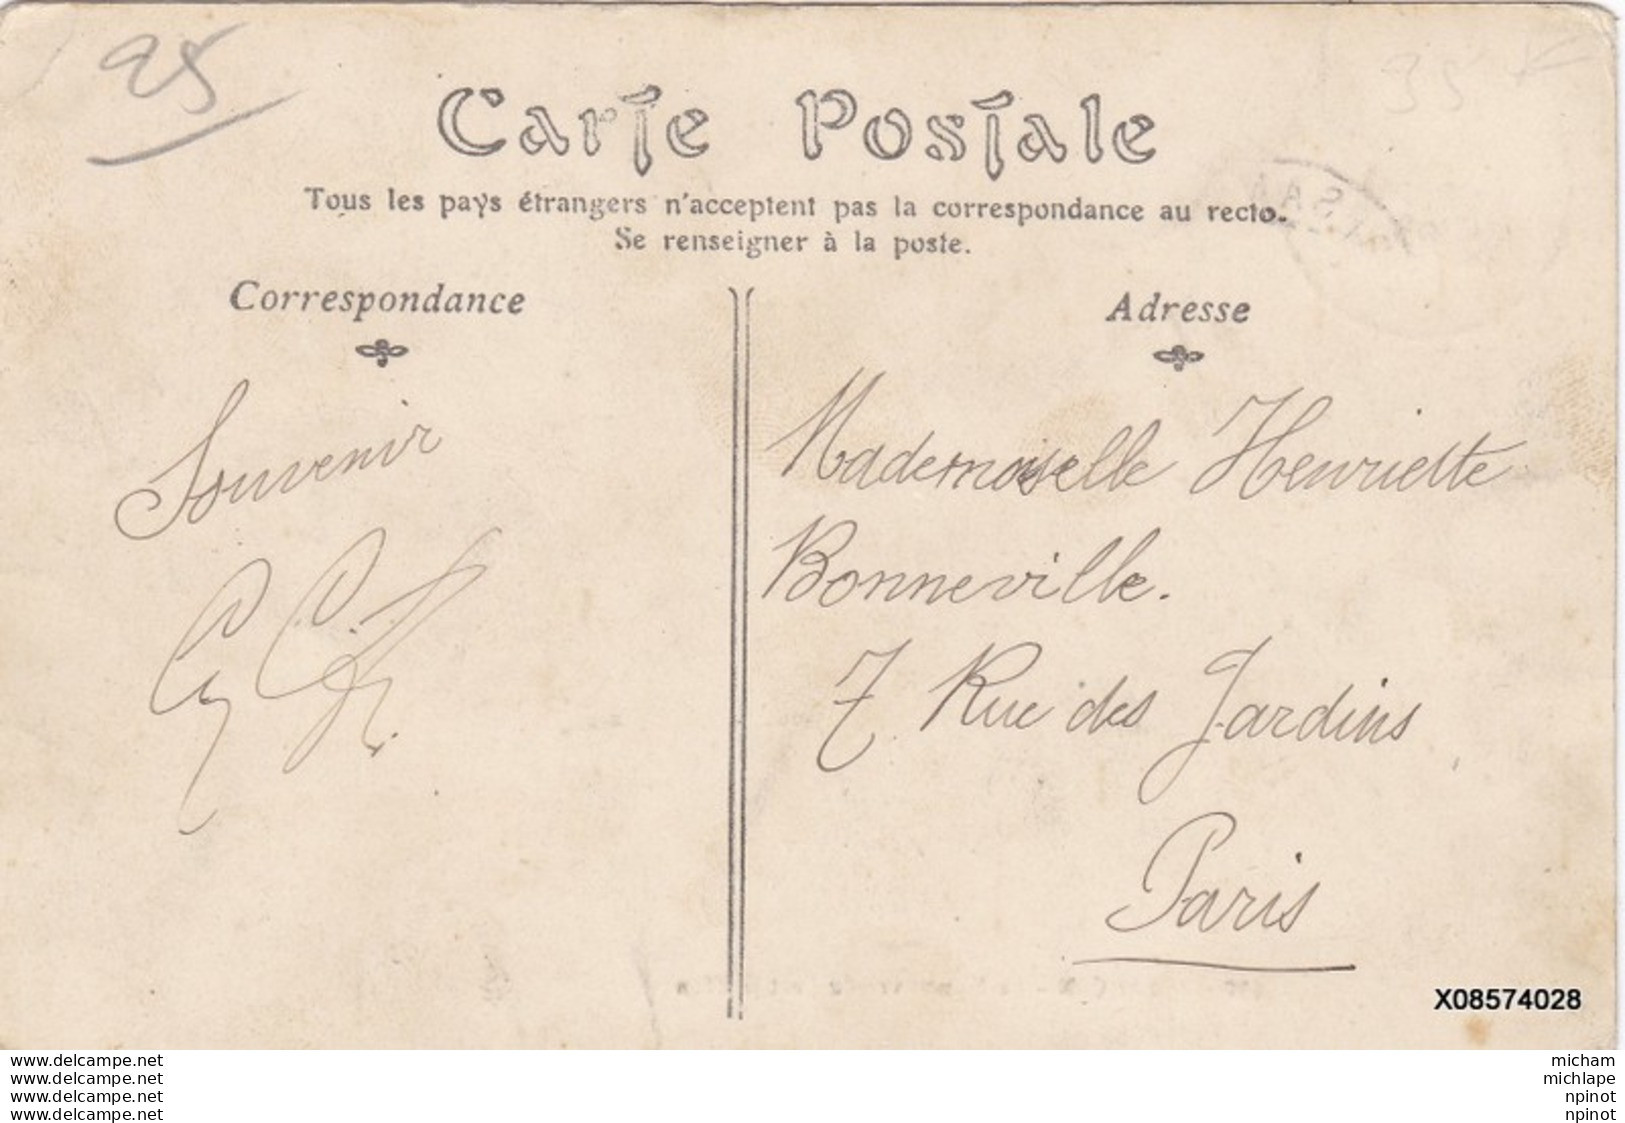 25
35
Carte Postale
Tous les pays étrangers n'acceptent pas la correspondance au recto.
Se renseigner à la poste.
Correspondance
Adresse
Souvenir
Mademoiselle Henriette
Bonneville.
7 Rue des Jardins
Paris
X08574028
www.delcampe.net
www.delcampe.net
www.delcampe.net
www.delcampe.net
micham
michlape
npinot
npinot